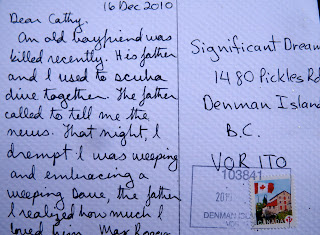 16 Dec 2010
Dear Cathy,
An old boyfriend was
killed recently. His father
and I used to scuba
dive together. The father
called to tell me the
news. That night, I
drempt I was weeping
and embracing a
weeping Dave, the father
I realized how much I
loved him. Max Rogers
Significant Dream
1480 Pickles Rd
Denman Island
B.C.
V0R 1T0
103841
DENMAN ISL
CANADA
P